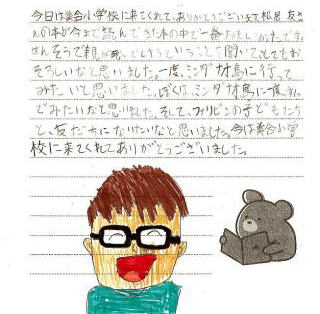 今日は美合小学校に来てくれて、ありがとうございます。松居友さ
んの本が今まで読んできた本の中で一番おもしろかったです。
さん そうで親が死、でしまうということを聞いてとてもお
そろしいなと思いました。一度、ミンダナオ島に行って
みたいと思いました。ぼくは、ミンダナオ島に一度、すん
でみたいなと思いました。そして、フィリピンの子どもたち
と、友だちになりたいなと思いました。今日は美合小学
校に来てくれてありがとうございました。